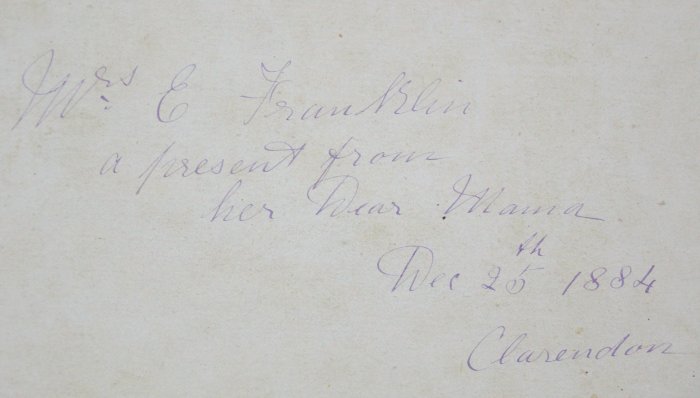 Mrs E Franklin
a present from
her Dear Mama
Dec 25th 1884
Clarendon